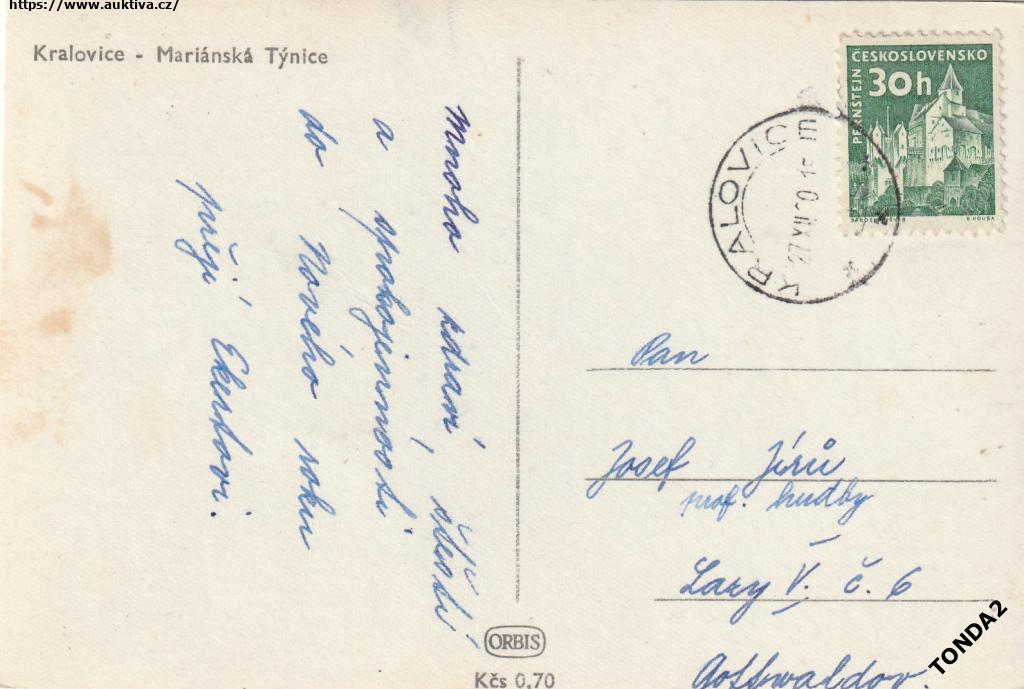 https://www.auktiva.cz/
Kralovice - Mariánská Týnice
Mnoho zdraví, štěstí
a spokojenosti
do Nového roku
přejí Ekertovi.
ČESKOSLOVENSKO
30h
PERNŠTEJN
KRALOVICE
27 XII 60
Pan
Josef Jírů
prof. hudby
Lazy V. č. 6
Gottwaldov.
ORBIS
Kčs 0,70
TONDA2